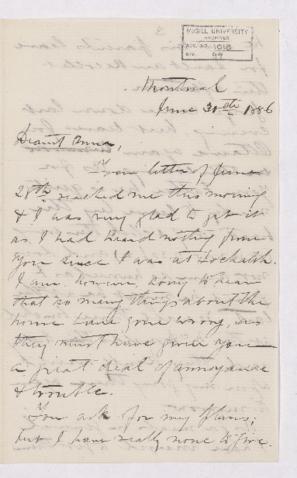 McGILL UNIVERSITY
ARCHIVES
ACC. NO. 1018
REF. 49
Montreal
June 30th 1886
Dearest Anna,
Your letter of June
28th reached me this morning
& I was very glad to get it
as I had heard nothing from
you since I was at
I am however, sorry to hear
that so many things about the
house have gone wrong, as
they must have given you
a great deal of annoyance
& trouble.
You ask for my plans;
but I have really none to give.